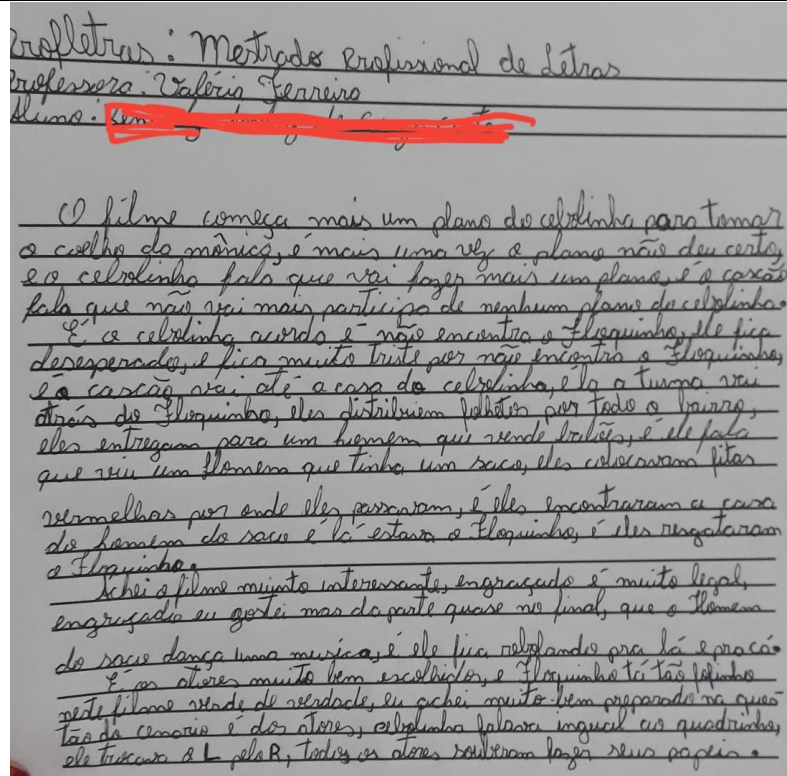 Profletras: Mestrado Profissional de Letras
Professora: Valéria Ferreira
Aluno:
O filme começa mais um plano do cebolinha para tomar
o coelho da mônica, é mais uma vez o plano não deu certo,
e o cebolinha fala que vai fazer mais um plano, é o cascão
fala que não vai mais participa de nenhum plano do cebolinha.
É o cebolinha acorda é não encontra o Floquinho, ele fica
desesperado, e fica muito triste por não encontra o Floquinho,
é o cascão vai até a casa do cebolinha, é la a turma vai
atráis do Floquinho, eles distribuem folhetos por todo o bairro,
eles entregam para um homem que vende balões, é ele fala
que viu um Homem que tinha um saco, eles colocavam fitas
vermelhas por onde eles passavam, é eles encontraram a casa
do homem do saco é lá estava o Floquinho, é eles resgataram
o Floquinho.
Achei o filme muinto interessante, engraçado é muito legal,
engraçadio eu gostei mas da parte quase no final, que o Homem
do saco dança uma musica, é ele fica rebolando pra lá e pra cá.
É os atores muito bem escolhidos, e Floquinho tá tão fofinho
neste filme verde de verdade, eu achei muito bem preparado na ques
tão do cenario é dos atores, cebolinha falava ingual ao quadrinho,
ele trocava o L pelo R, todos os atores souberam fazer seus papeis.